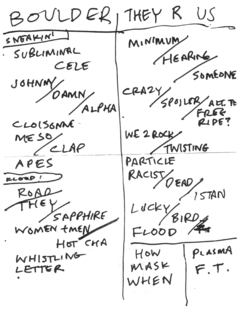 BOULDER
SNEAKIN!
SUBLIMINAL
CELE
JOHNNY
DAMN
ALPHA
CLOISONNE
MESO
CLAP
APES
FLOOD!
ROAD
THEY
SAPPHIRE
WOMEN + MEN
HOT CHA
WHISTLING
LETTER
THEY R US
MINIMUM
HEARING
SOMEONE
CRAZY
SPOILER / ALL TO
FREE
RIDE?
WE 2 ROCK
TWISTING
PARTICLE
RACIST
DEAD
ISTAN
LUCKY
BIRD
FLOOD
HOW
MASK
WHEN
PLASMA
F. T.